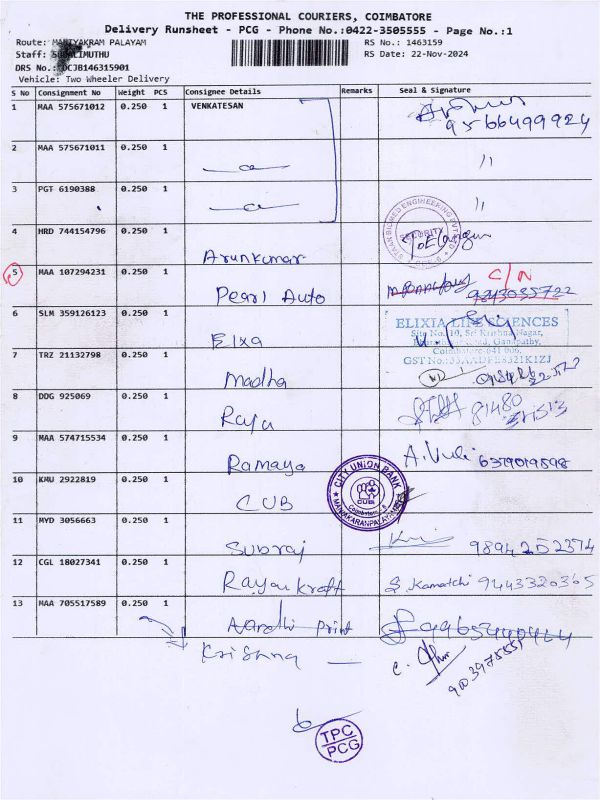 THE PROFESSIONAL COURIERS, COIMBATORE
Delivery Runsheet - PCG - Phone No.:0422-3505555 - Page No.:1
Route: MANIYAKRAM PALAYAM
RS No.: 1463159
Staff:
RS Date: 22-Nov-2024
DRS No.: DCJB146315901
Vehicle: Two Wheeler Delivery
S No Consignment No Weight PCS Consignee Details Remarks Seal & Signature
1 MAA 575671012 0.250 1 VENKATESAN 9566499924
2 MAA 575671011 0.250 1 — a — 11
3 PGT 6190388 0.250 1 — a — 11
4 HRD 744154796 0.250 1 Arunkumar SECURITY
5 MAA 107294231 0.250 1 Pearl Auto C/N
6 SLM 359126123 0.250 1 Elxa ELIXIA LIFE SCIENCES
Site No. 10, Sri Krishna Nagar,
Ganapathy,
Coimbatore-641 006.
7 TRZ 21132798 0.250 1 Madha
8 DDG 925069 0.250 1 Raja 81480
9 MAA 574715534 0.250 1 Ramaya 6379019898
10 KMU 2922819 0.250 1 CUB CITY UNION BANK CUB Coimbatore - 6
11 MYD 3056663 0.250 1 Subraj 9894252374
12 CGL 18027341 0.250 1 Rayan Kraft S. Kamatchi 9443320365
13 MAA 705517589 0.250 1 Aardhi Print
Krishna — 9003975551
TPC
PCG